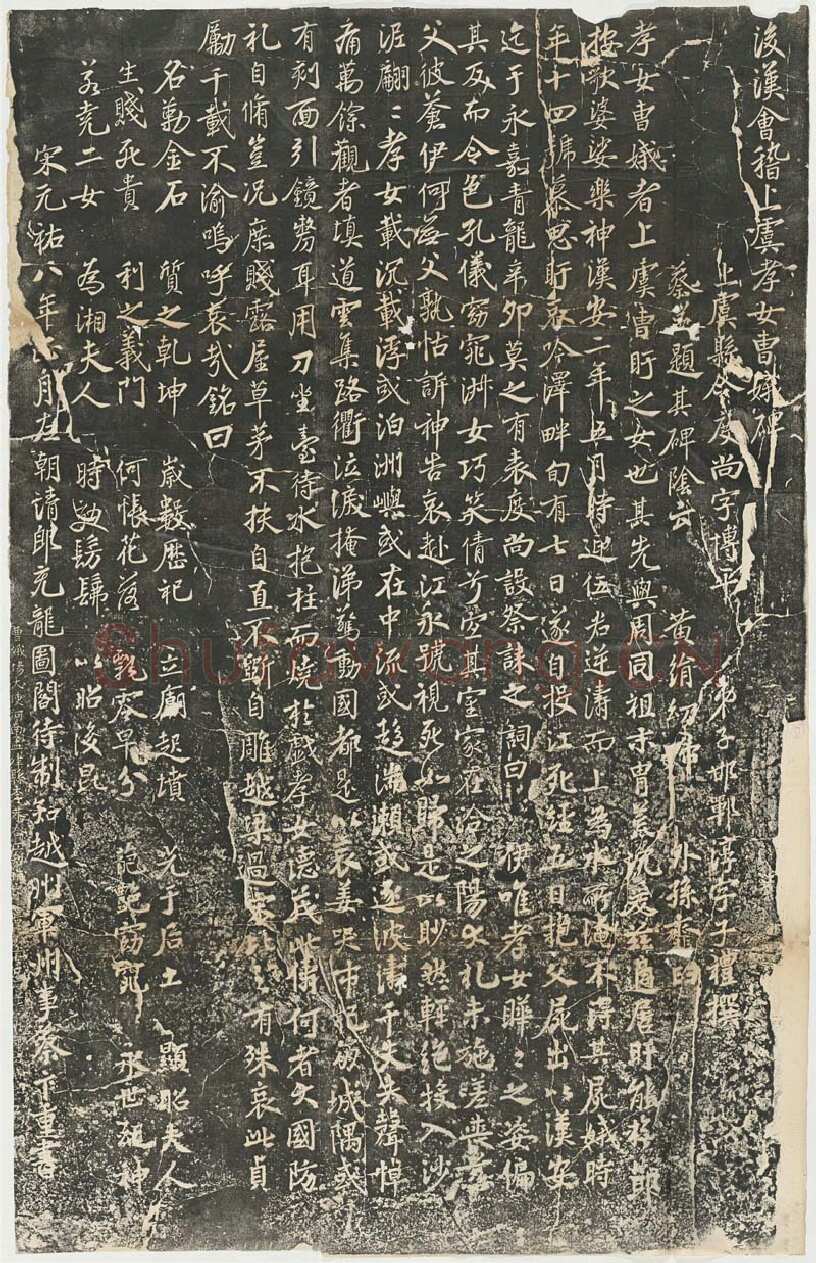 後漢會稽上虞孝女曹娥碑
上虞縣令度尚字博平 弟子邯鄲淳字子禮撰
蔡邕題其碑陰云 黃絹幼婦 外孫齏臼
孝女曹娥者上虞曹盱之女也其先與周同祖末胄荒沉爰茲適居盱能撫節
按歌婆娑樂神漢安二年五月時迎伍君逆濤而上為水所淹不得其屍娥時
年十四號慕思盱哀吟澤畔旬有七日遂自投江死經五日抱父屍出以漢安
迄于永嘉青龍辛卯莫之有表度尚設祭誄之詞曰 伊唯孝女曄〻之姿偏
其反而令色孔儀窈窕淑女巧笑倩兮宜其室家在洽之陽大禮未施嗟喪
父彼蒼伊何無父孰怙訴神告哀赴江永號視死如歸是以眇然輕絕投入沙
泥翩〻孝女載沉載浮或泊洲嶼或在中流或趨湍瀨或逐波濤千夫失聲悼
痛萬餘觀者填道雲集路衢泣淚掩涕驚動國都是以哀姜哭市杞崩城隅或
有剋面引鏡剺耳用刀坐臺待水抱柱而燒於戲孝女德茂此儔何者大國防
礼自脩豈況庶賤露屋草茅不扶自直不斲自雕越梁過宋比之有殊哀此貞
勵千載不渝嗚呼哀哉銘曰
名勒金石 質之乾坤 歲數歷祀 立廟起墳 光于后土 顯昭夫人
生賤死貴 利之義門 何悵花落 飄零早分 葩艷窈窕 永世配神
若堯二女 為湘夫人 時效髣髴 以昭後昆
宋元祐八年正月左朝請郎充龍圖閣待制知越州軍州事蔡卞重書
shufawang.cn